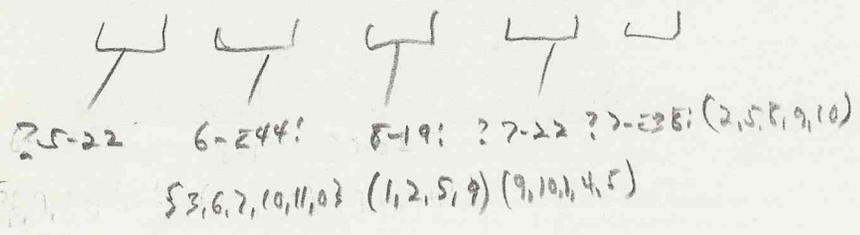 ?5-22 6-Z44: 8-19: ?7-22 ?7-Z38: (2,5,8,9,10)
{3,6,7,10,11,0} (1,2,5,9) (9,10,1,4,5)